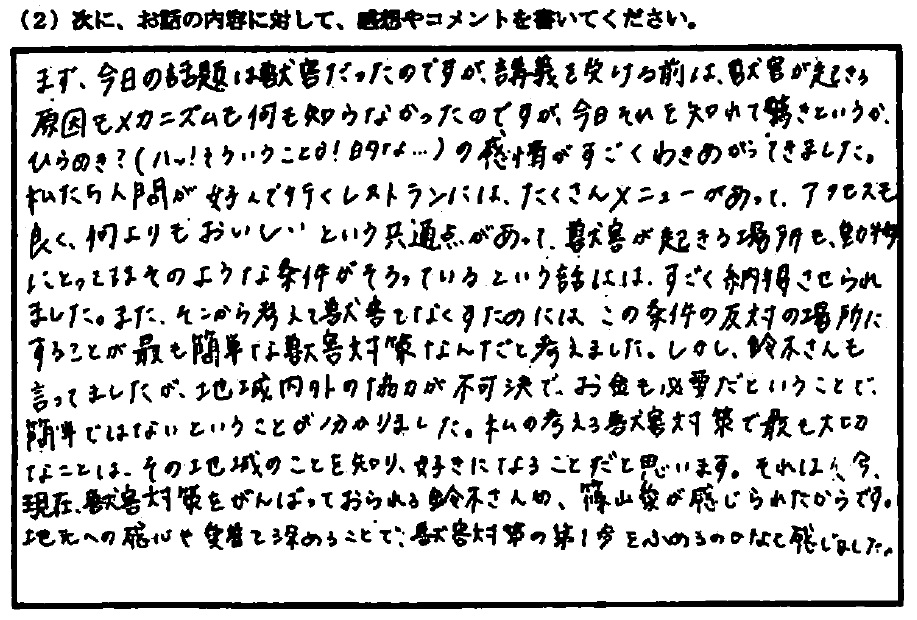 (2) 次に、お話の内容に対して、感想やコメントを書いてください。
まず、今日の話題は獣害だったのですが、講義を受ける前は、獣害が起きる
原因もメカニズムも何も知らなかったのですが、今日それを知れて驚きというか、
ひらめき?(ハッ!そういうことか!的な…)の感情がすごくわきあがってきました。
私たち人間が好んで行くレストランには、たくさんメニューがあって、アクセスも
良く、何よりもおいしいという共通点があって、獣害が起きる場所も、動物
にとってはそのような条件がそろっているという話には、すごく納得させられ
ました。また、そこから考えて獣害をなくすためには、この条件の反対の場所に
することが最も簡単な獣害対策なんだと考えました。しかし、鈴木さんも
言ってましたが、地域内外の協力が不可決で、お金も必要だということで、
簡単ではないということが分かりました。私の考える獣害対策で最も大切
なことは、その地域のことを知り、好きになることだと思います。それは、今、
現在、獣害対策をがんばっておられる鈴木さんの、篠山愛が感じられたからです。
地元への関心や愛着を深めることで、獣害対策の第1歩をふめるのかなと感じました。